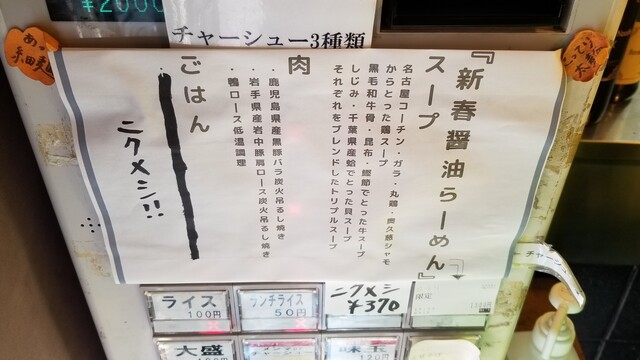 ¥2000
チャーシュー3種類
『新春醤油らーめん』
スープ
名古屋コーチン・ガラ・丸鶏・奥久慈シャモ
からとった鶏スープ
黒毛和牛骨・昆布・鰹節でとった牛スープ
しじみ・千葉県産蛤でとった貝スープ
それぞれをブレンドしたトリプルスープ
肉
・鹿児島県産黒豚バラ炭火吊るし焼き
・岩手県産岩中豚肩ロース炭火吊るし焼き
・鴨ロース低温調理
ごはん
ニクメシ!!
ライス
100円
ランチライス
50円
ニクメシ
¥370
限定
大盛
味玉
120円